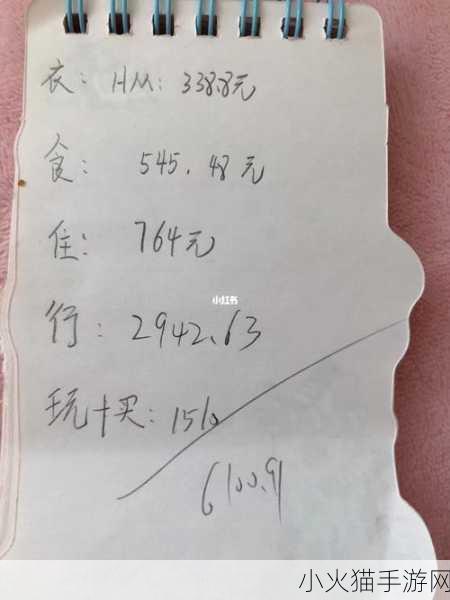 衣：HM：338.8元
食：545.48元
住：764元
行：2942.63
小红书
玩十买：1510
6100.91
小火猫手游网